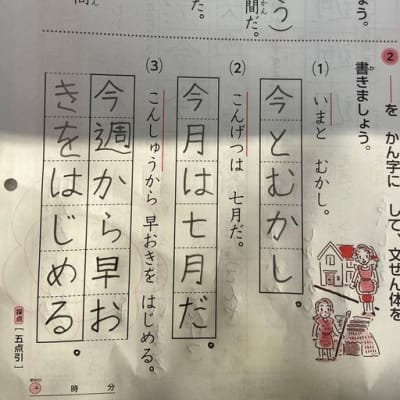 う)
間だ。
かん
ょう。
2 ──を かん字に して、文ぜん体を
書きましょう。
か
(1) いまと むかし。
今とむかし。
(2) こんげつは 七月だ。
今月は七月だ。
(3) こんしゅうから 早おきを はじめる。
今週から早お
きをはじめる。
採点 [五点引]
時 分